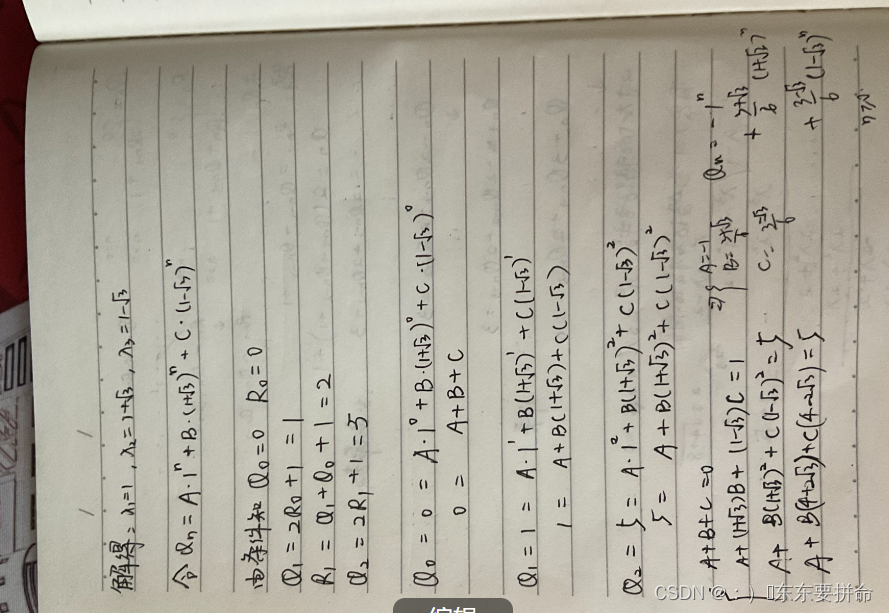 解得: λ₁=1, λ₂=1+√3, λ₃=1-√3
令Qn = A·1ⁿ + B·(1+√3)ⁿ + C·(1-√3)ⁿ
由条件知 Q₀=0 R₀=0
Q₁ = 2R₀+1 = 1
R₁ = Q₁+Q₀+1 = 2
Q₂ = 2R₁+1 = 5
Q₀ = 0 = A·1⁰ + B·(1+√3)⁰ + C·(1-√3)⁰
0 = A+B+C
Q₁ = 1 = A·1¹ + B(1+√3)¹ + C(1-√3)¹
1 = A+B(1+√3)+C(1-√3)
Q₂ = 5 = A·1² + B(1+√3)² + C(1-√3)²
5 = A + B(1+√3)² + C(1-√3)²
A+B+C=0
A+(1+√3)B+(1-√3)C=1
A+ B(1+√3)²+C(1-√3)²=5
A+B(4+2√3)+C(4-2√3)=5
⇒ { A=-1
B= 3+√3/6
C= 3-√3/6
Qn = -1ⁿ
+ 3+√3/6 (1+√3)ⁿ
+ 3-√3/6 (1-√3)ⁿ
CSDN @:)东东要拼命
编辑